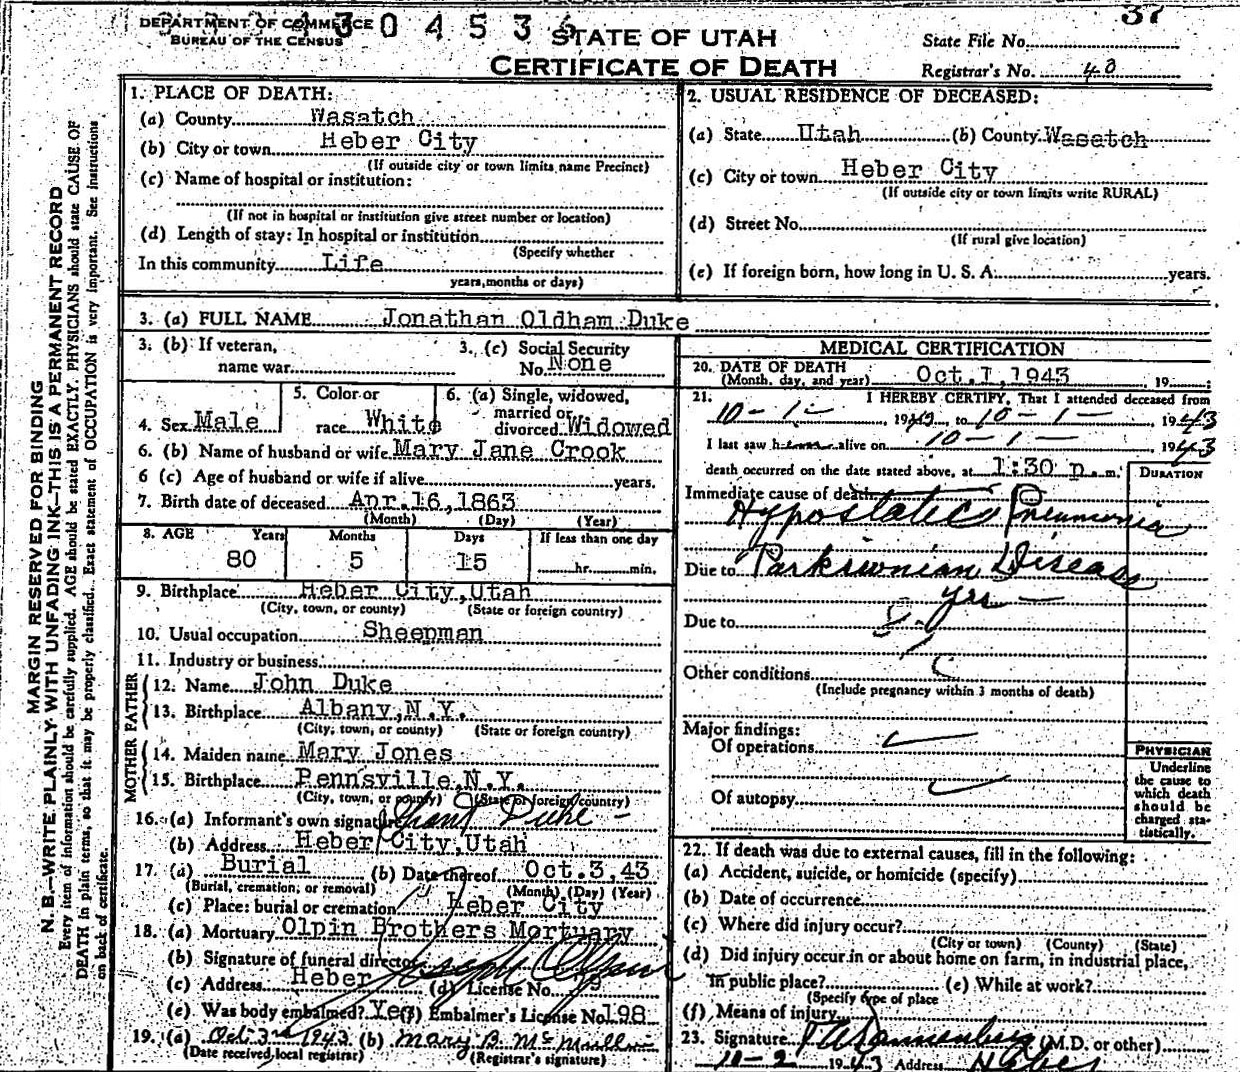 DEPARTMENT OF COMMERCE
BUREAU OF THE CENSUS
STATE OF UTAH
CERTIFICATE OF DEATH
37
State File No.
Registrar's No. 40
MARGIN RESERVED FOR BINDING
N. B.—WRITE PLAINLY WITH UNFADING INK—THIS IS A PERMANENT RECORD
Every item of information should be carefully supplied. AGE should be stated EXACTLY. PHYSICIANS should state CAUSE OF
DEATH in plain terms, so that it may be properly classified. Exact statement of OCCUPATION is very important. See instructions
on back of certificate.
1. PLACE OF DEATH:
(a) County Wasatch
(b) City or town Heber City
(If outside city or town limits name Precinct)
(c) Name of hospital or institution:
(If not in hospital or institution give street number or location)
(d) Length of stay: In hospital or institution
(Specify whether
In this community Life
years, months or days)
2. USUAL RESIDENCE OF DECEASED:
(a) State Utah (b) County Wasatch
(c) City or town Heber City
(If outside city or town limits write RURAL)
(d) Street No.
(If rural give location)
(e) If foreign born, how long in U. S. A. years.
3. (a) FULL NAME Jonathan Oldham Duke
3. (b) If veteran,
name war
3. (c) Social Security
No. None
4. Sex Male
5. Color or
race White
6. (a) Single, widowed,
married or
divorced Widowed
6. (b) Name of husband or wife Mary Jane Crook
6 (c) Age of husband or wife if alive years.
7. Birth date of deceased Apr. 16, 1863
(Month) (Day) (Year)
8. AGE Years Months Days If less than one day
80 5 15 hr. min.
9. Birthplace Heber City, Utah
(City, town, or county) (State or foreign country)
10. Usual occupation Sheepman
11. Industry or business
FATHER
12. Name John Duke
13. Birthplace Albany, N.Y.
(City, town, or county) (State or foreign country)
MOTHER
14. Maiden name Mary Jones
15. Birthplace Pennsville, N.Y.
(City, town, or county) (State or foreign country)
16. (a) Informant's own signature Grant Duke
(b) Address Heber City, Utah
17. (a) Burial (b) Date thereof Oct. 3, 43
(Burial, cremation, or removal) (Month) (Day) (Year)
(c) Place: burial or cremation Heber City
18. (a) Mortuary Olpin Brothers Mortuary
(b) Signature of funeral director Joseph Olpin
(c) Address Heber (d) License No.
(e) Was body embalmed? Yes (f) Embalmer's License No. 198
19. (a) Oct 3rd 1943 (b) Mary B. McMullin
(Date received local registrar) (Registrar's signature)
MEDICAL CERTIFICATION
20. DATE OF DEATH
(Month, day, and year) Oct. 1, 1943, 19
21. I HEREBY CERTIFY, That I attended deceased from
10-1-, 1943, to 10-1-, 1943
I last saw him alive on 10-1-, 1943
death occurred on the date stated above, at 1:30 p. m.
DURATION
Immediate cause of death
Hypostatic Pneumonia
Due to Parkinsonian Disease
yrs —
Due to
Other conditions
(Include pregnancy within 3 months of death)
Major findings:
Of operations
Of autopsy
PHYSICIAN
Underline
the cause to
which death
should be
charged sta-
tistically.
22. If death was due to external causes, fill in the following:
(a) Accident, suicide, or homicide (specify)
(b) Date of occurrence
(c) Where did injury occur?
(City or town) (County) (State)
(d) Did injury occur in or about home on farm, in industrial place,
in public place? (e) While at work?
(Specify type of place
(f) Means of injury
23. Signature (M.D. or other)
10-2 1943 Address Heber